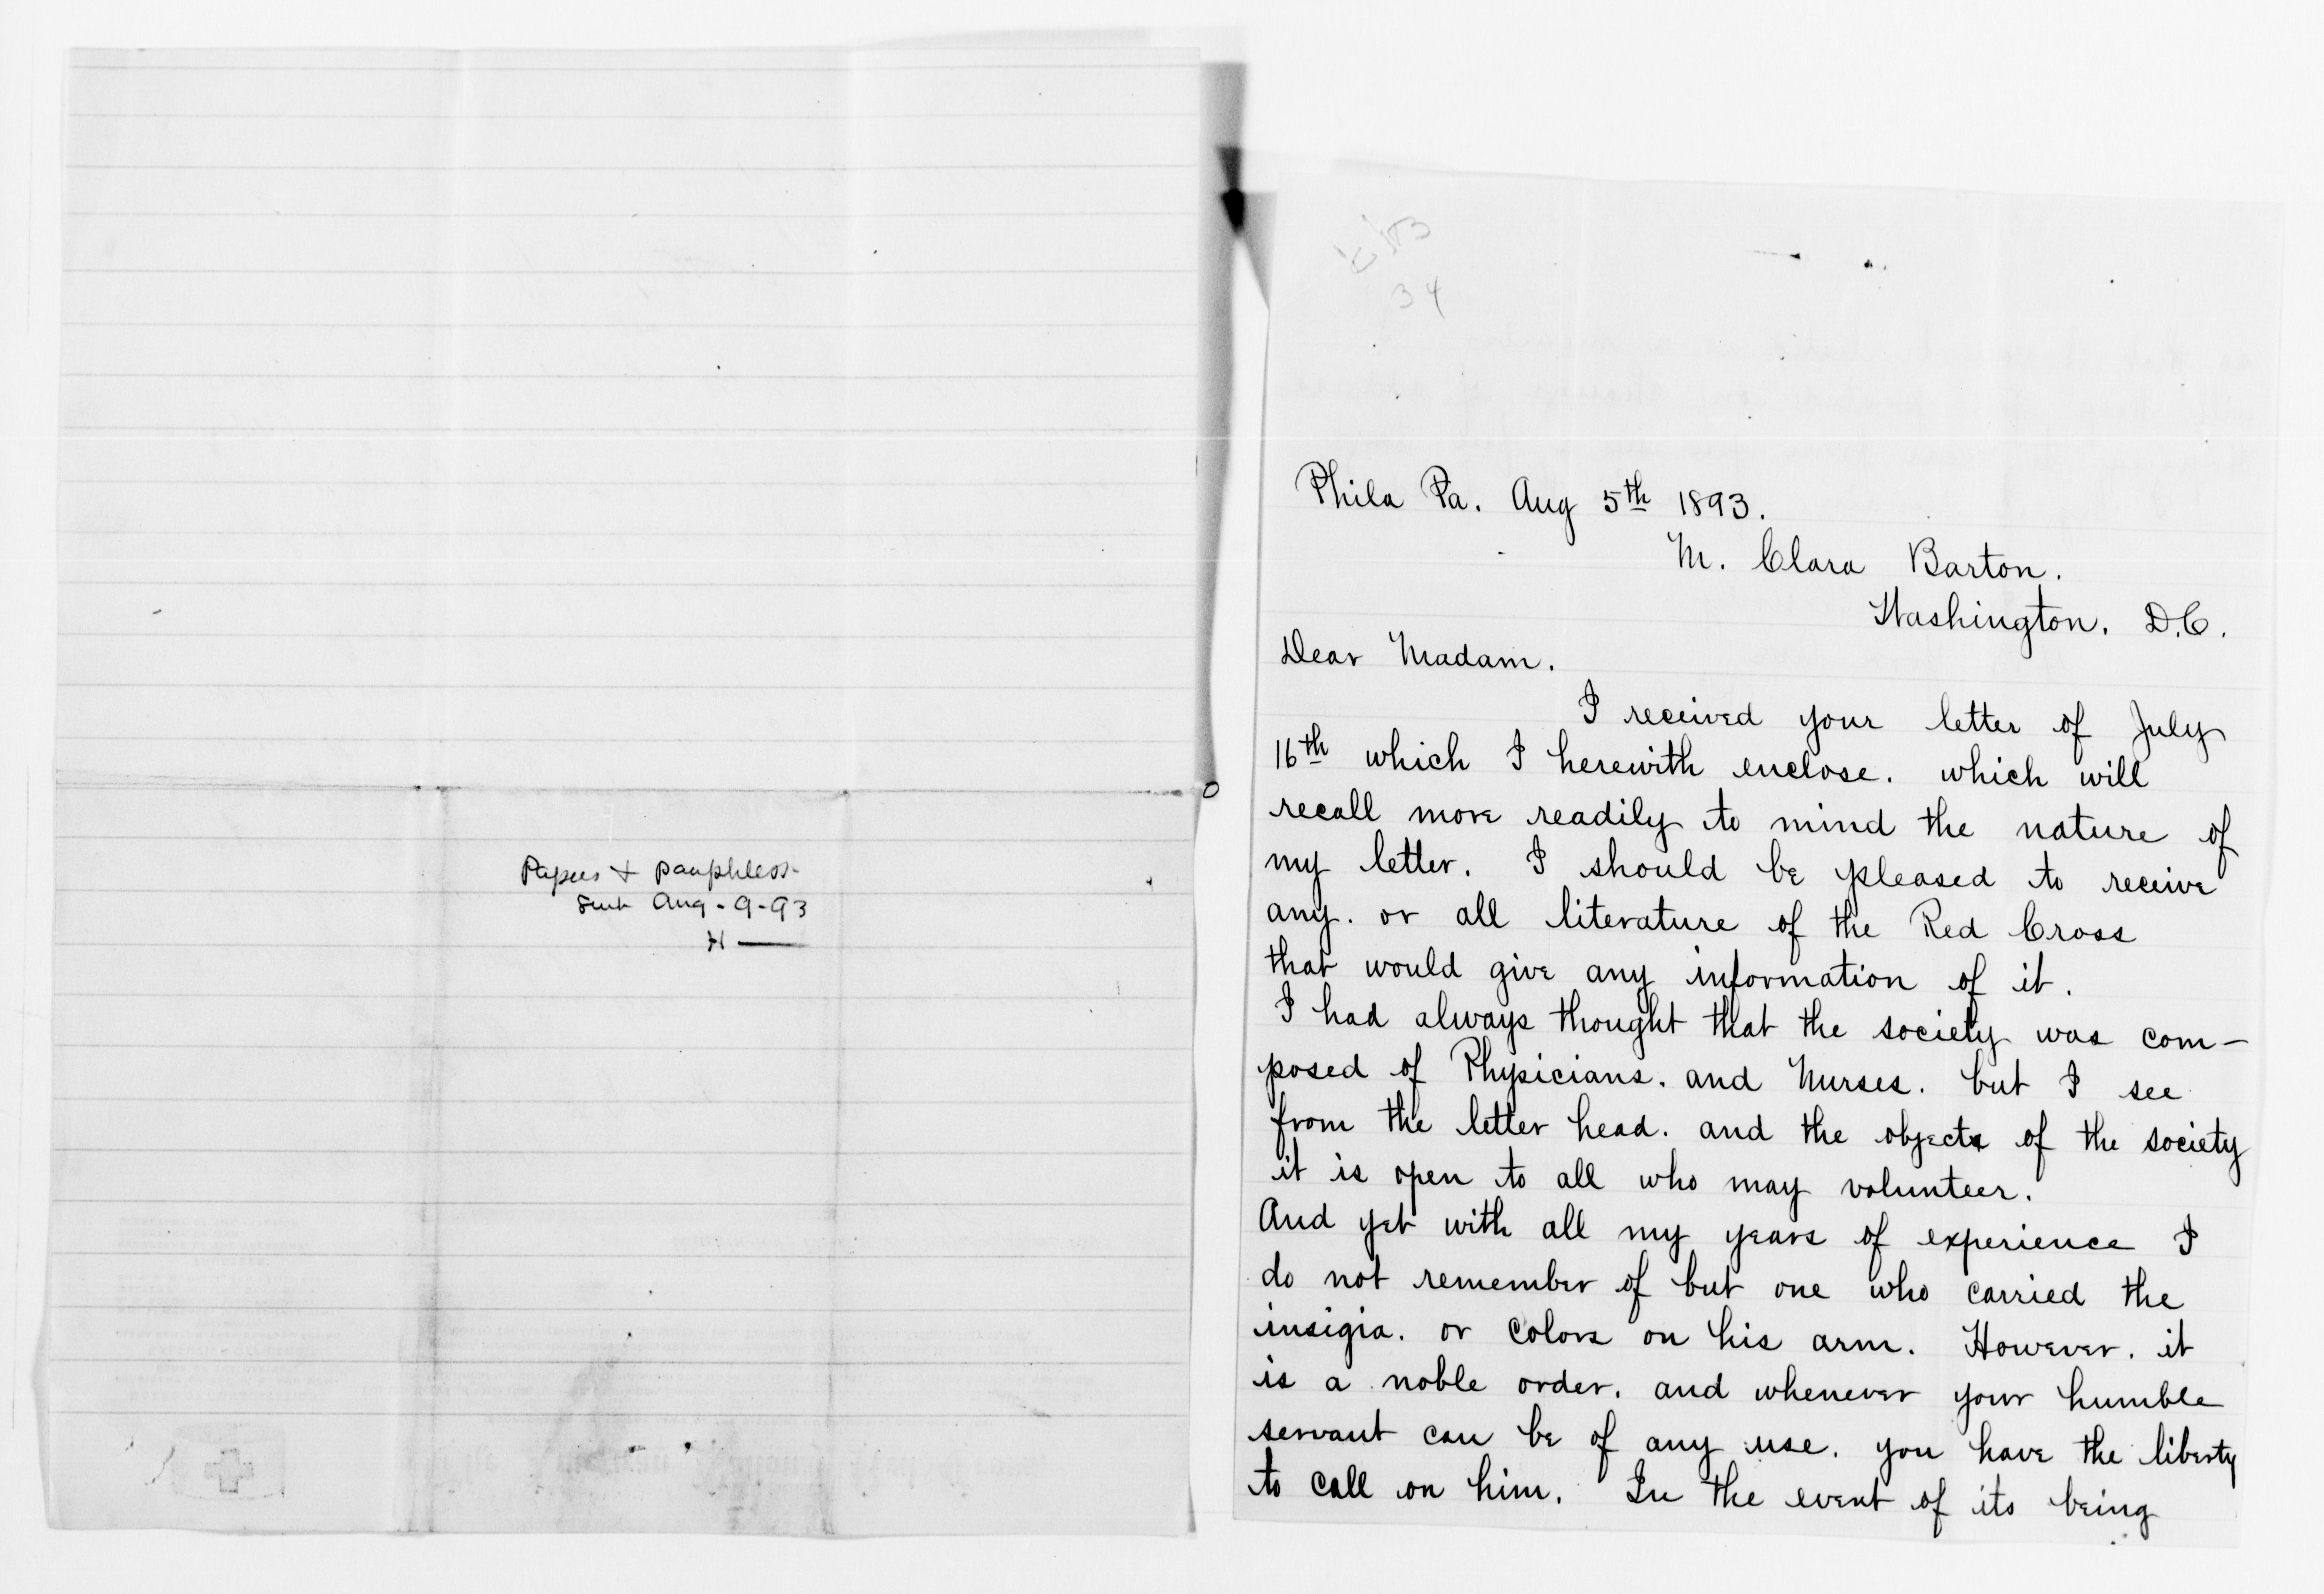 Papers + pamphlets
Sent Aug-9-93
H—
34
Phila Pa. Aug 5th 1893.
M. Clara Barton.
Washington. D.C.
Dear Madam.
I received your letter of July
16th which I herewith enclose. which will
recall more readily to mind the nature of
my letter. I should be pleased to receive
any. or all literature of the Red Cross
that would give any information of it.
I had always thought that the society was com-
posed of Physicians. and Nurses. but I see
from the letter head. and the objects of the society
it is open to all who may volunteer.
And yet with all my years of experience I
do not remember of but one who carried the
insigia. or colors on his arm. However. it
is a noble order. and whenever your humble
servant can be of any use. you have the liberty
to call on him. In the event of its being